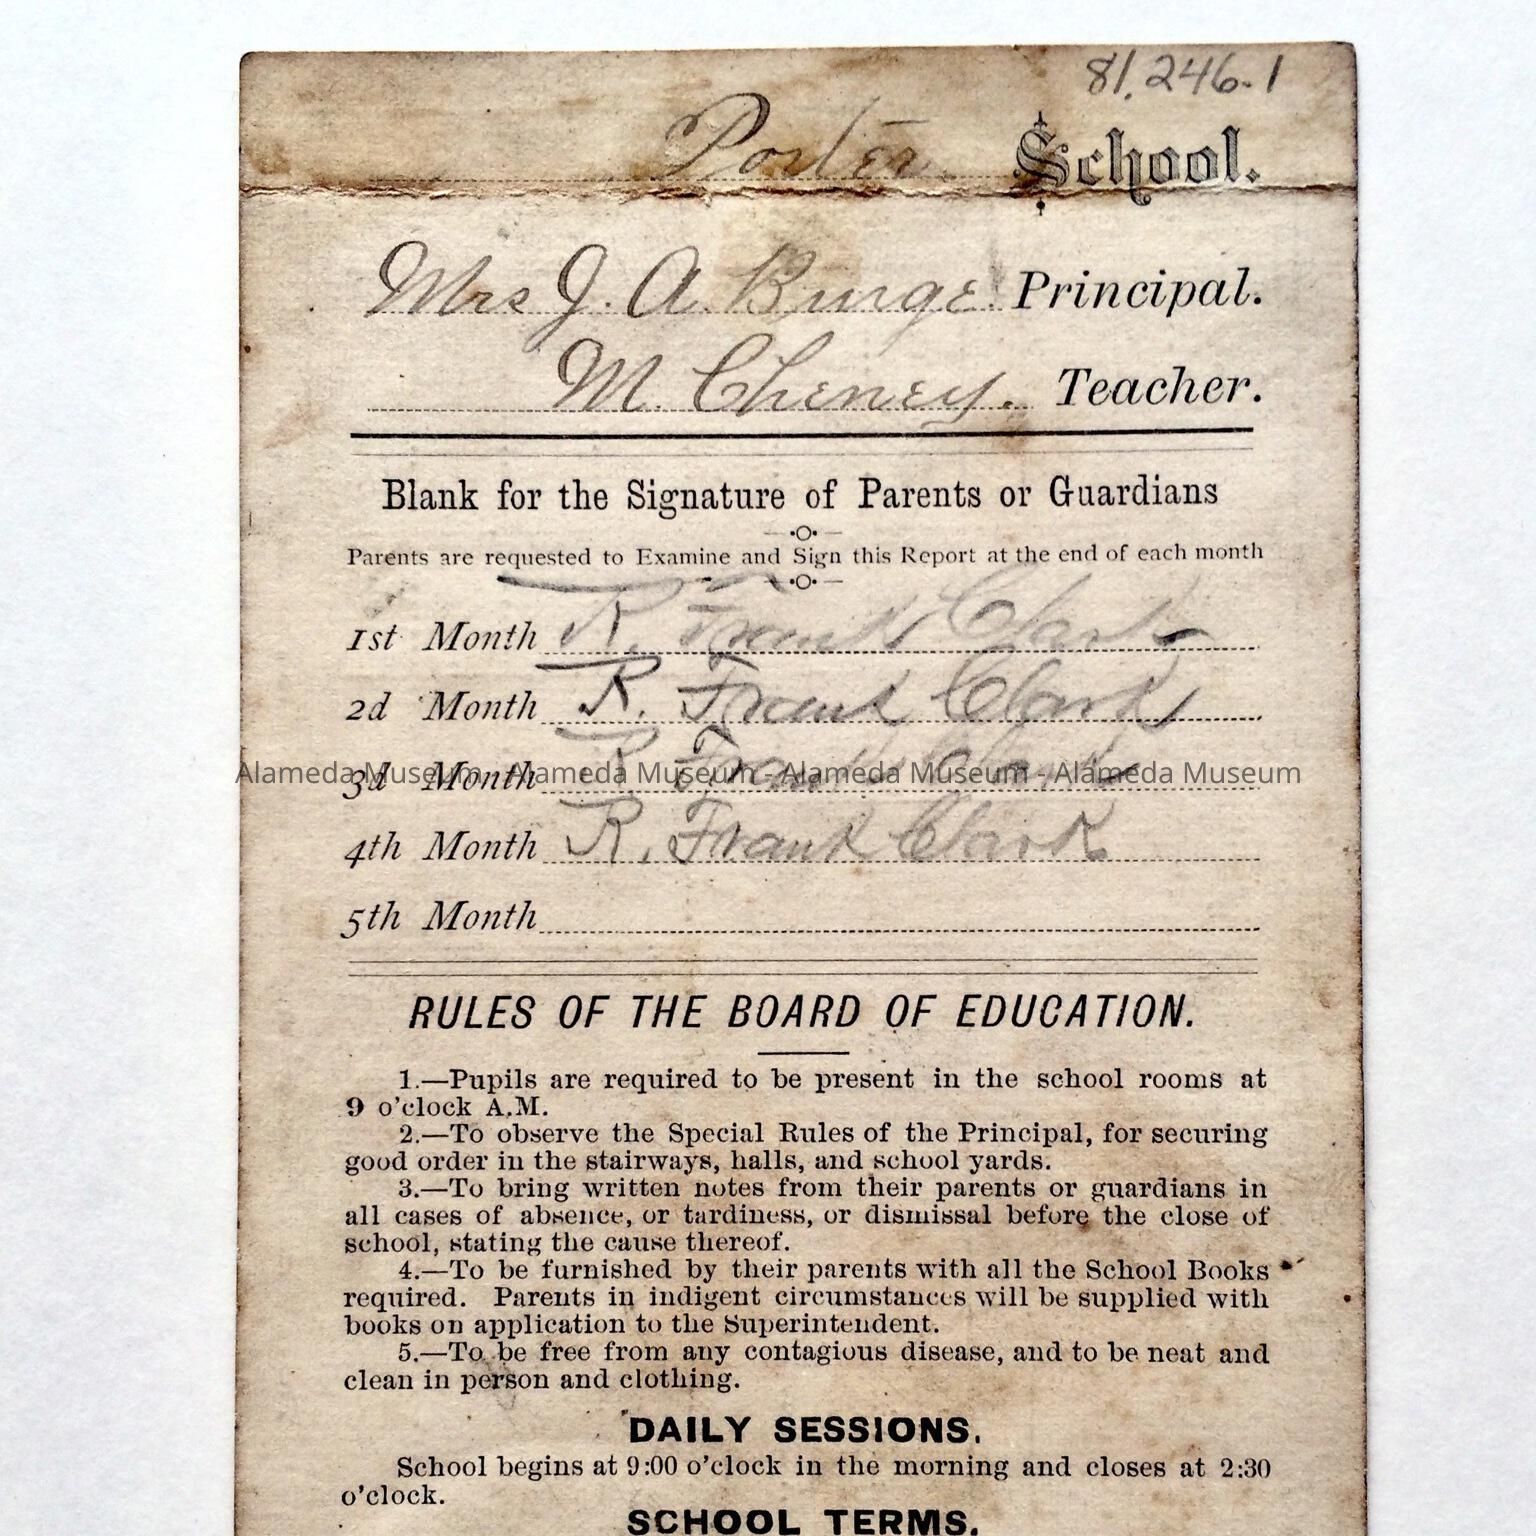 81.246.1
Porter School.
Mrs J. A. Burge. Principal.
M. Cheney. Teacher.
Blank for the Signature of Parents or Guardians
Parents are requested to Examine and Sign this Report at the end of each month
1st Month R. Frank Clark
2d Month R. Frank Clark
3d Month R Frank Clark
Alameda Museum - Alameda Museum - Alameda Museum - Alameda Museum
4th Month R. Frank Clark
5th Month
RULES OF THE BOARD OF EDUCATION.
1.—Pupils are required to be present in the school rooms at
9 o'clock A.M.
2.—To observe the Special Rules of the Principal, for securing
good order in the stairways, halls, and school yards.
3.—To bring written notes from their parents or guardians in
all cases of absence, or tardiness, or dismissal before the close of
school, stating the cause thereof.
4.—To be furnished by their parents with all the School Books
required. Parents in indigent circumstances will be supplied with
books on application to the Superintendent.
5.—To be free from any contagious disease, and to be neat and
clean in person and clothing.
DAILY SESSIONS.
School begins at 9:00 o'clock in the morning and closes at 2:30
o'clock.
SCHOOL TERMS.